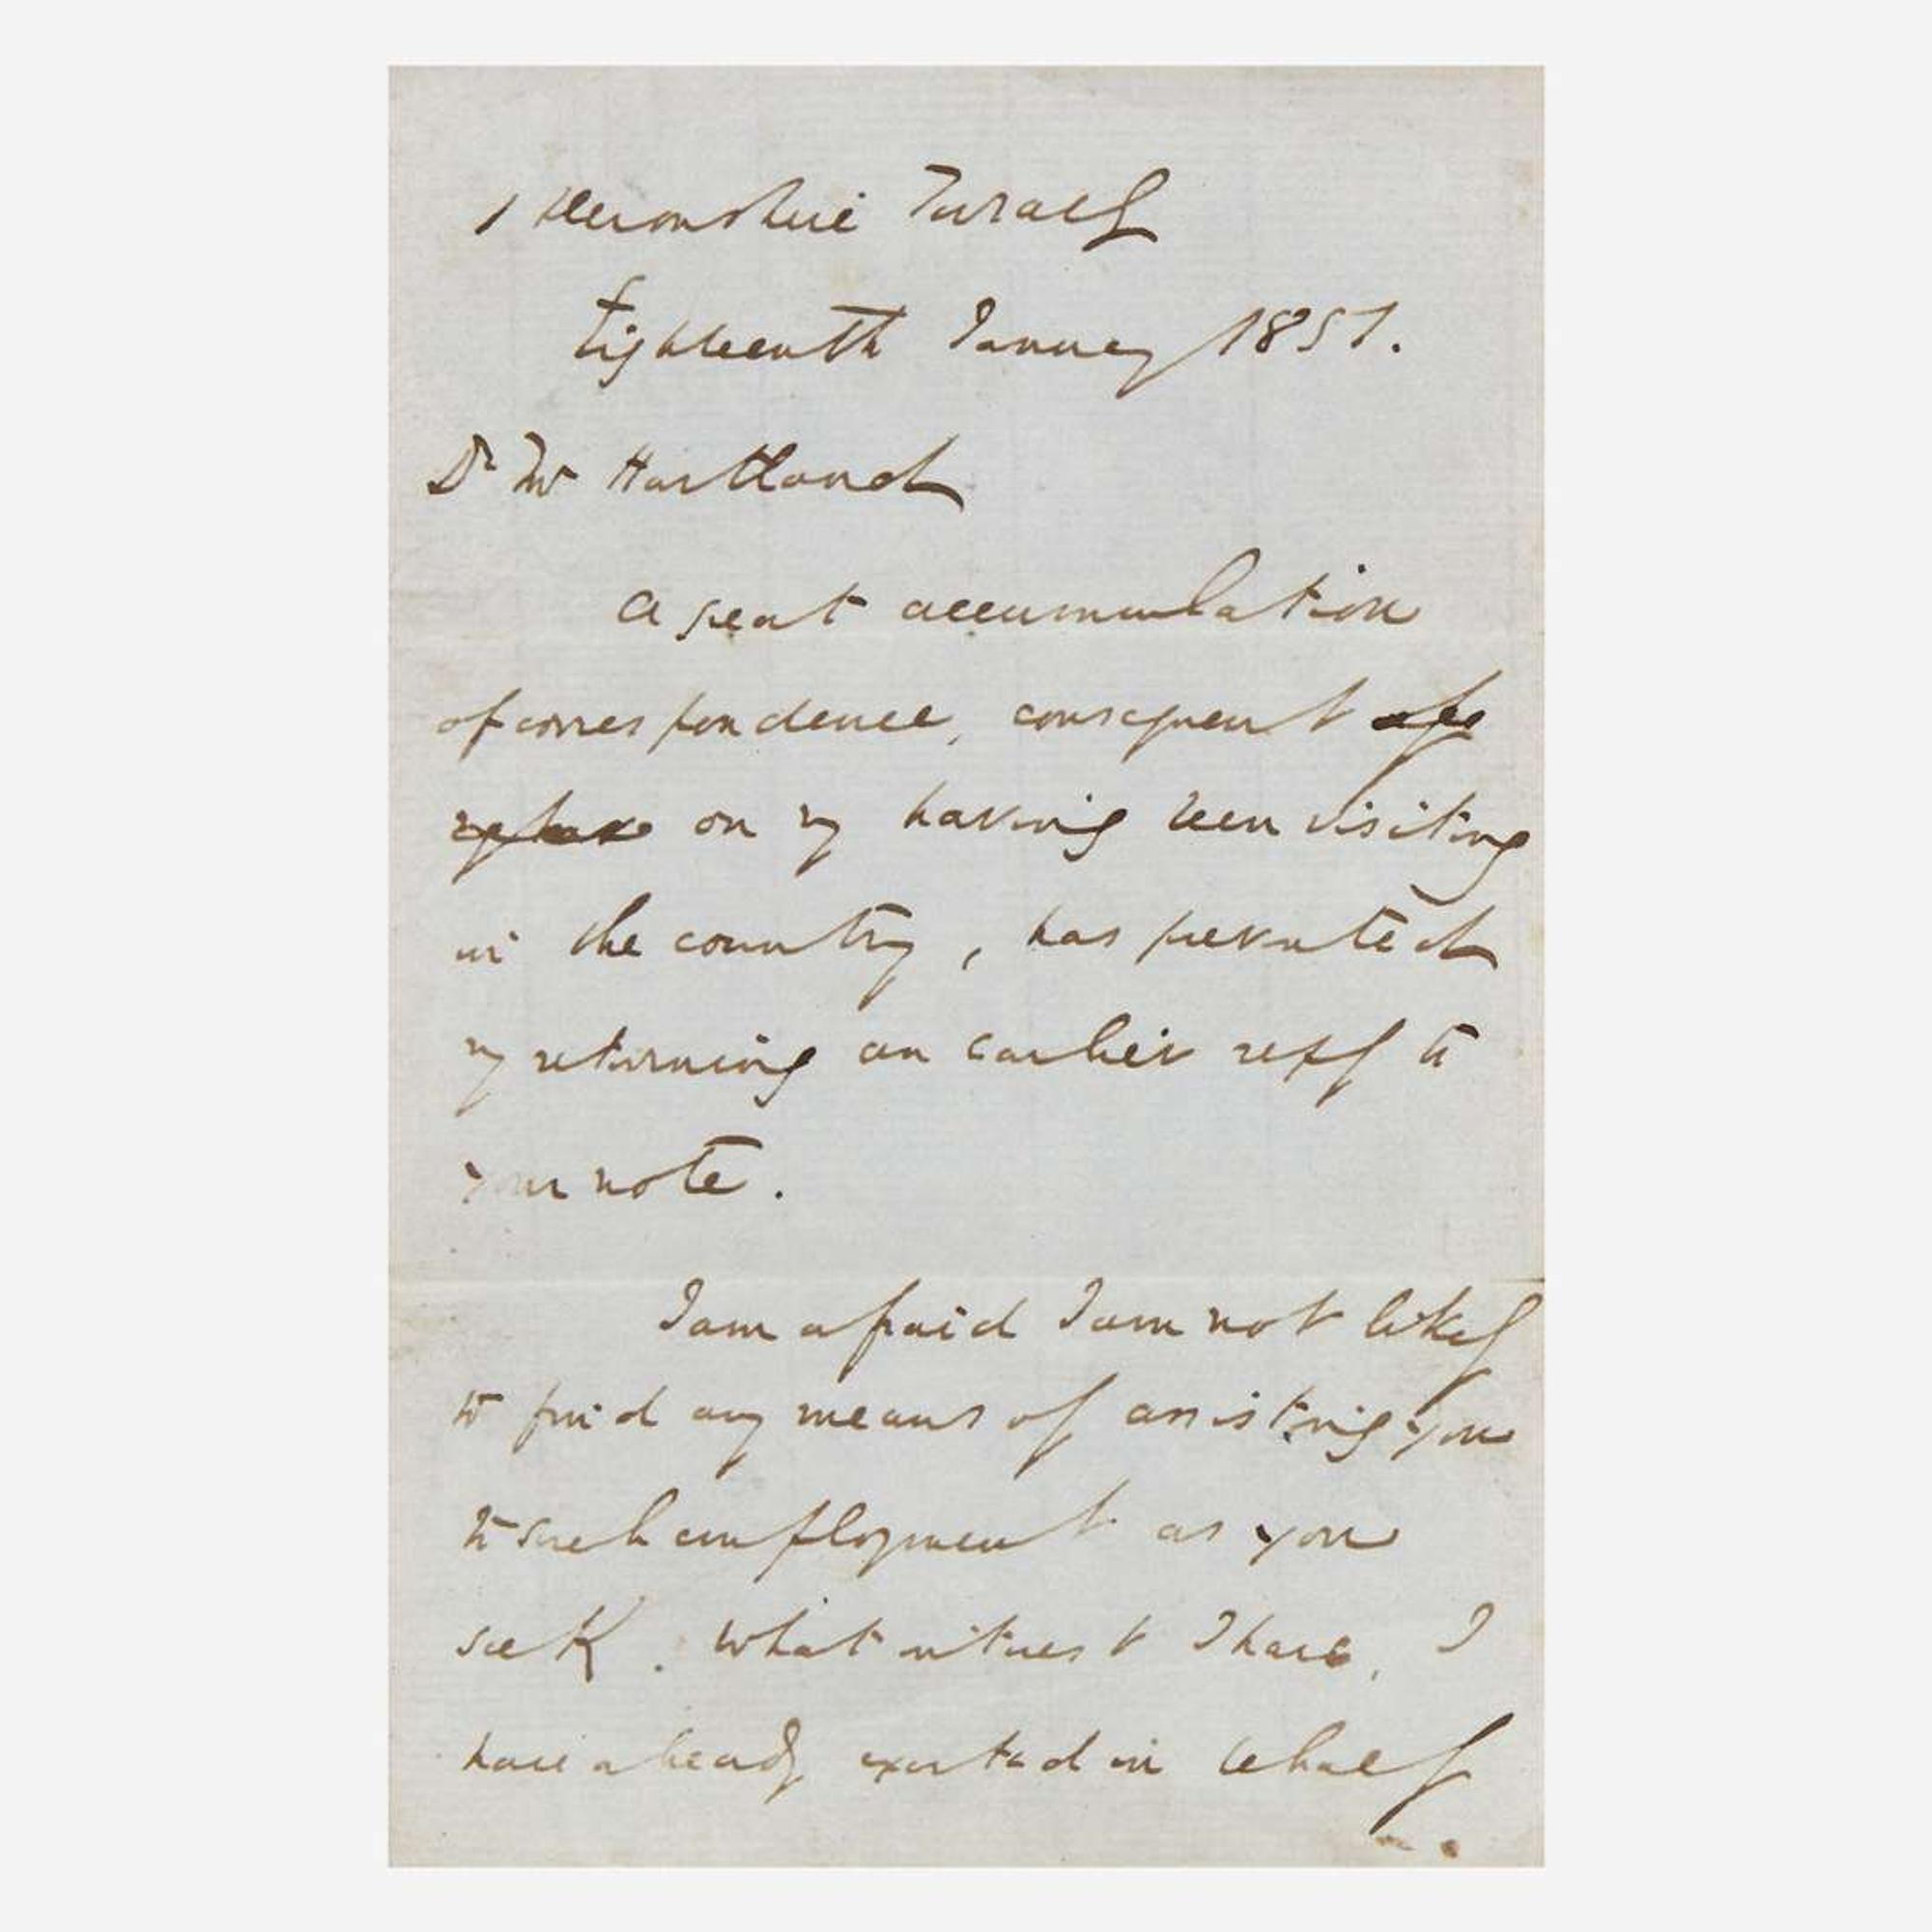 1 Devonshire Terrace
Eighteenth January 1851.
Dr Mr Hartland
A great accumulation
of correspondence, consequent
on my having been visiting
in the country, has prevented
my returning an earlier reply to
your note.
I am afraid I am not likely
to find any means of assisting you
to such employment as you
seek. What interest I have, I
have already exerted in behalf